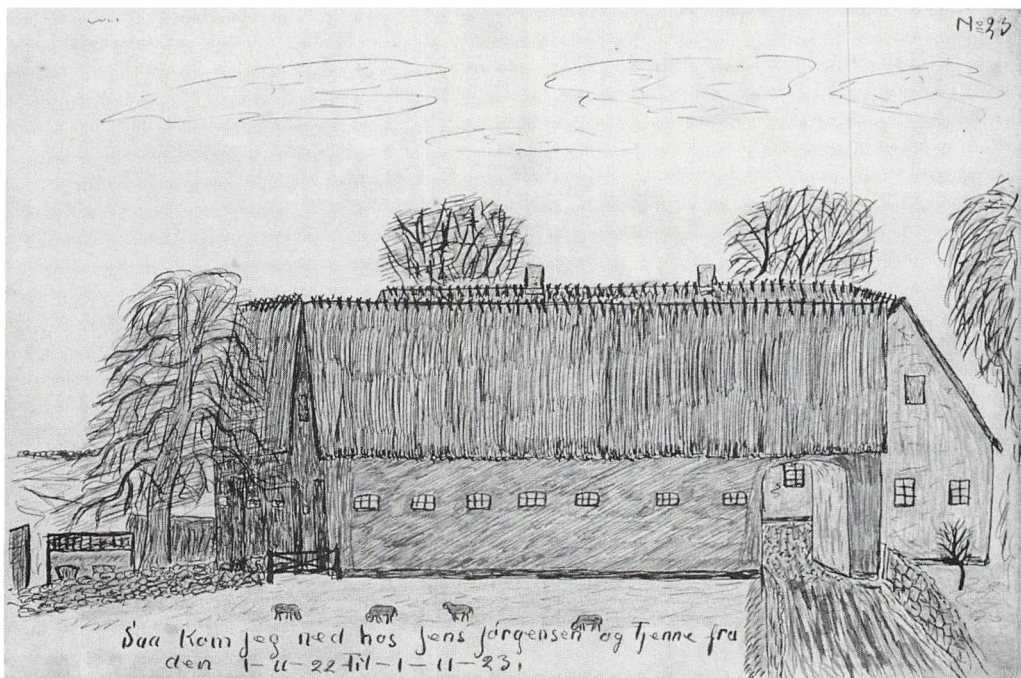 No 23
Saa Kom jeg ned hos Jens Jørgensen og Tjenne fra
den 1-11-22 Til-1-11-23.